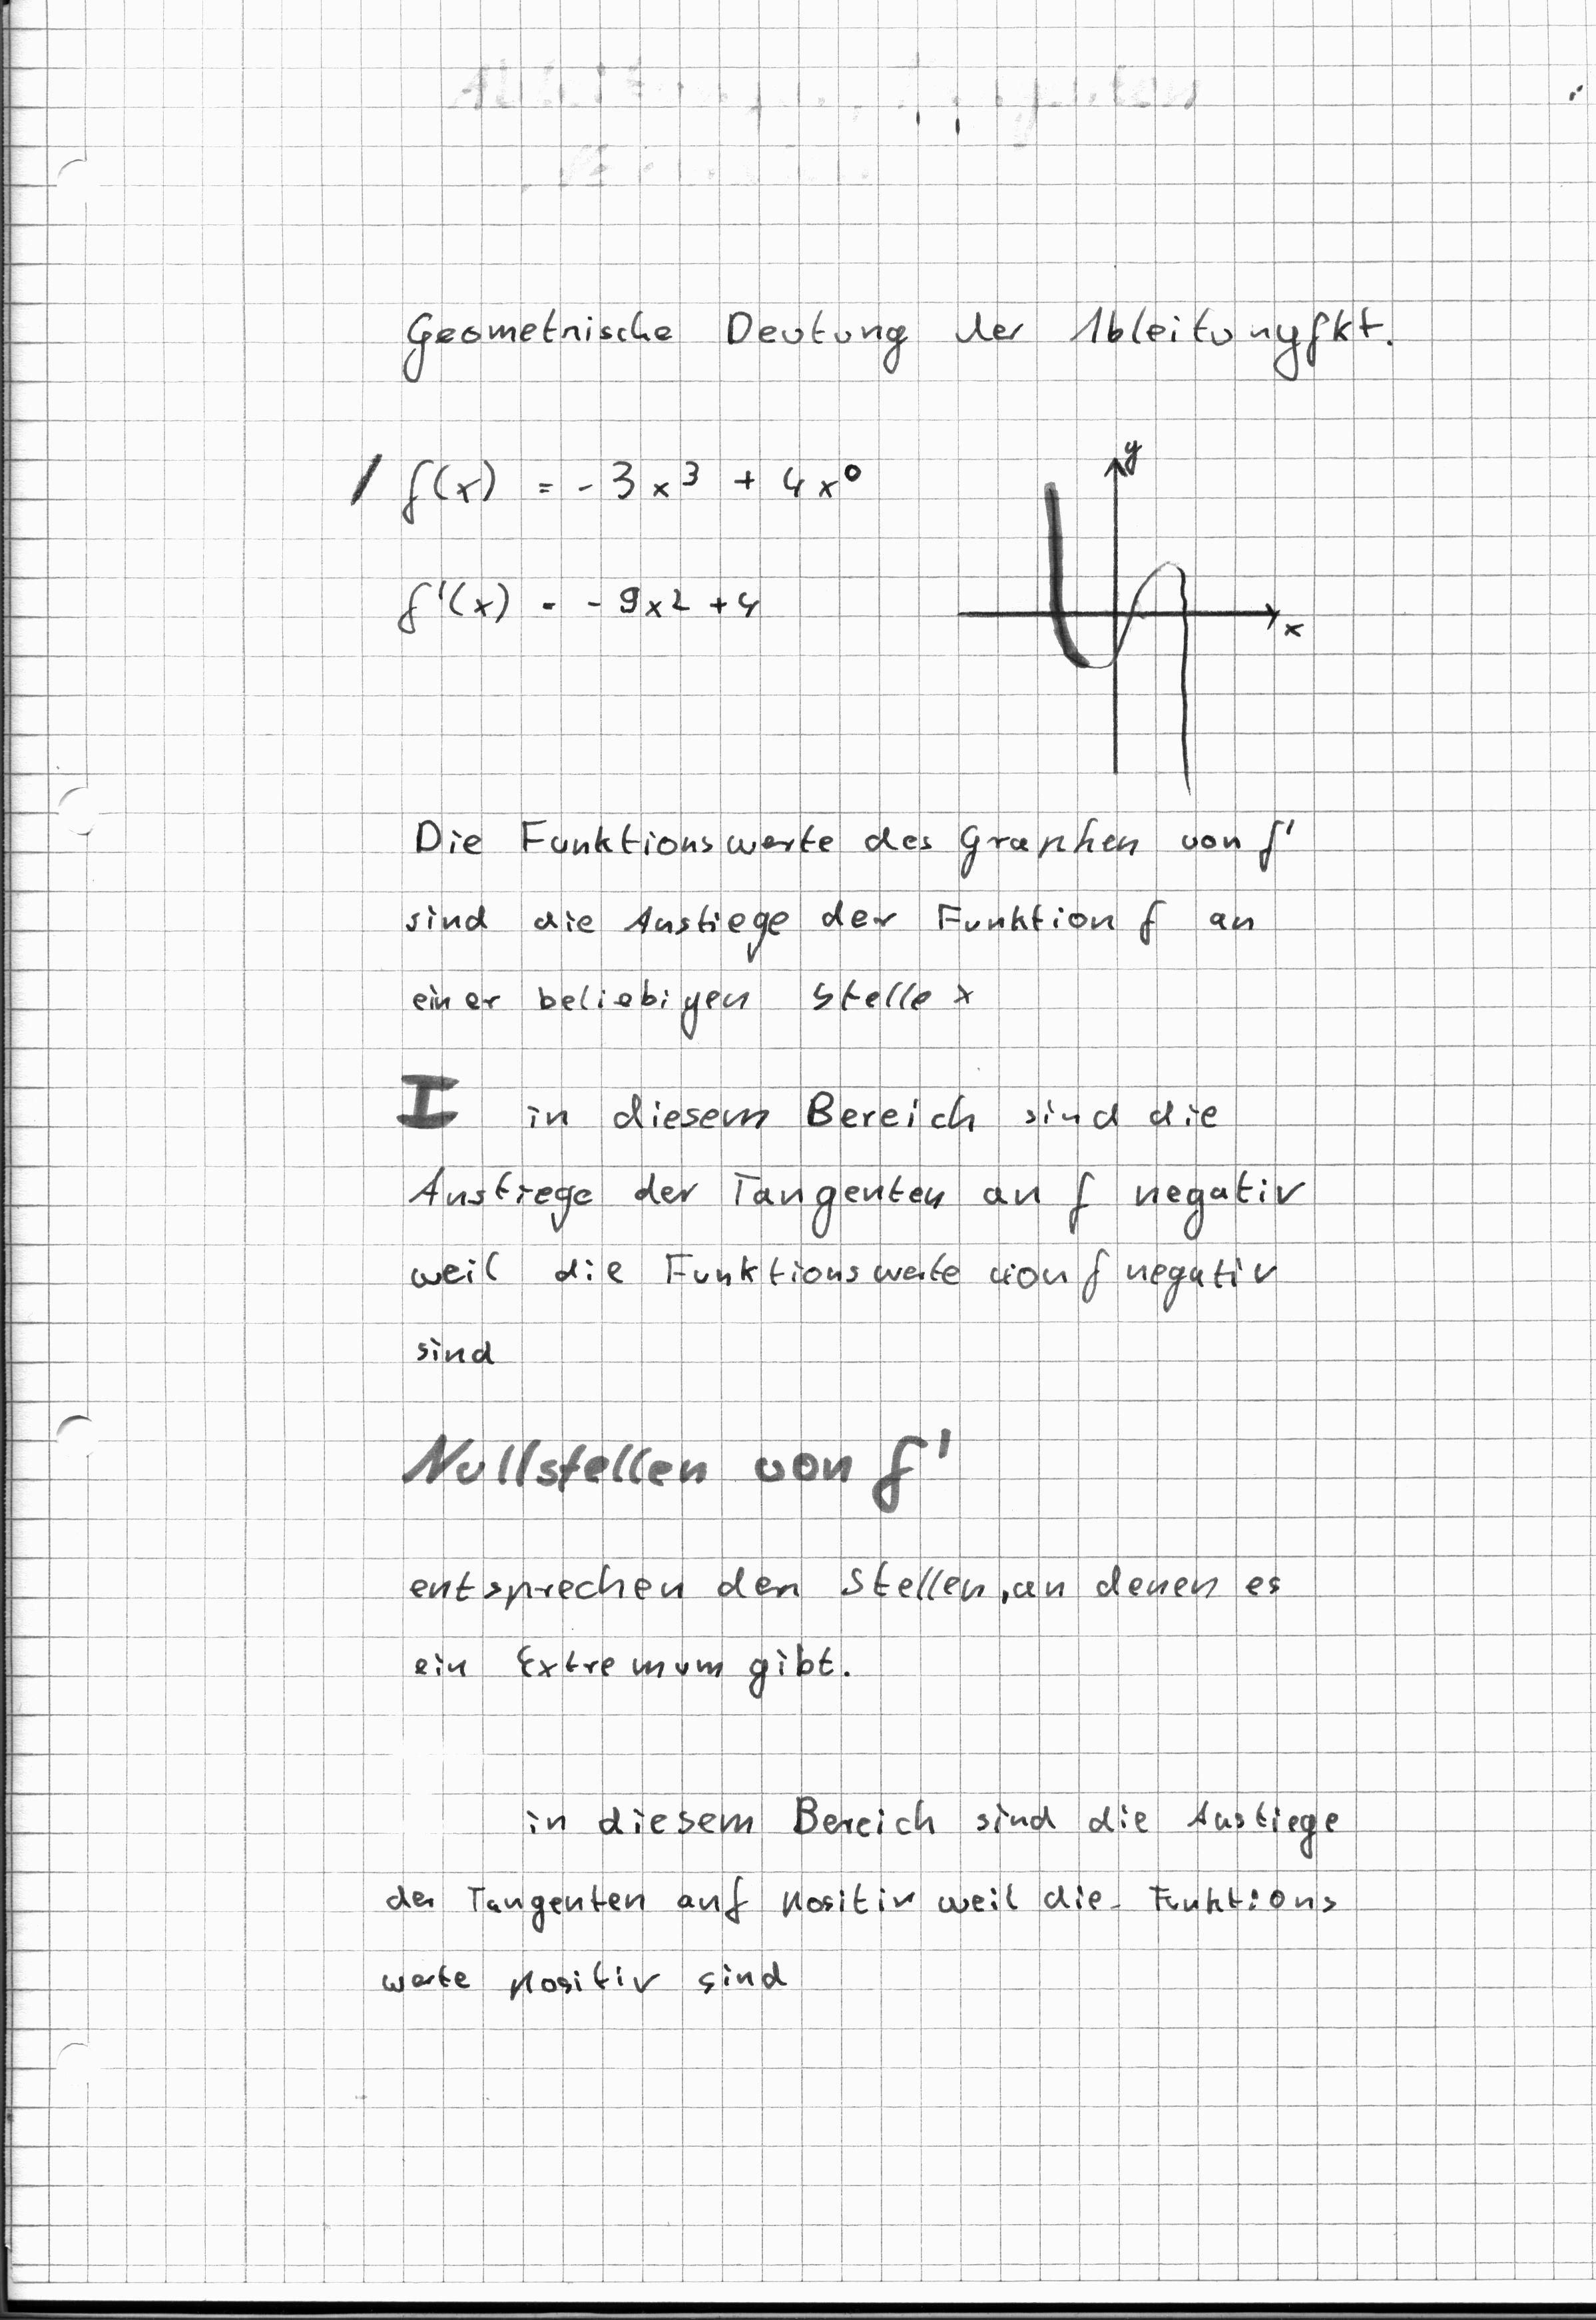 Geometrische Deutung der Ableitungfkt.
f(x) = - 3x³ + 4x⁰
y
f'(x) = - 9x2 + 4
x
Die Funktionswerte des Graphen von f'
sind die Anstiege der Funktion f an
einer beliebigen Stelle x
I in diesem Bereich sind die
Anstiege der Tangenten an f negativ
weil die Funktionswerte von f negativ
sind
Nullstellen von f'
entsprechen den Stellen, an denen es
ein Extremum gibt.
in diesem Bereich sind die Anstiege
der Tangenten an f positiv weil die Funktions
werte positiv sind